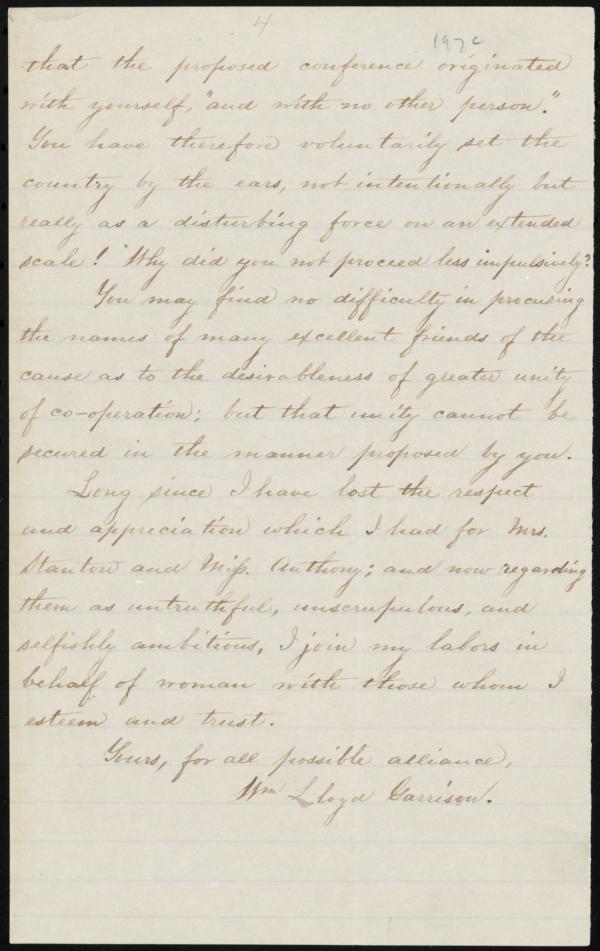 4
that the proposed conference originated
with yourself, "and with no other person."
You have therefore voluntarily set the
country by the ears, not intentionally but
really as a disturbing force on an extended
scale! Why did you not proceed less impulsively?
You may find no difficulty in procuring
the names of many excellent friends of the
cause as to the desirableness of greater unity
of co-operation; but that unity cannot be
secured in the manner proposed by you.
Long since I have lost the respect
and appreciation which I had for Mrs.
Stanton and Miss. Anthony; and now regarding
them as untruthful, unscrupulous, and
selfishly ambitious, I join my labors in
behalf of woman with those whom I
esteem and trust.
Yours, for all possible alliance,
Wm Lloyd Garrison.